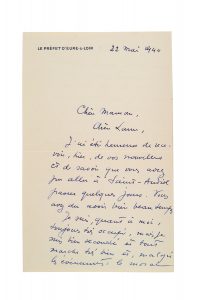 LE PRÉFET D'EURE-&-LOIR
22 mai 1940
Chère Maman,
Chère Laure,
J'ai été heureux de rece-
voir, hier, de vos nouvelles
et de savoir que vous avez
pu aller à Saint-André
passer quelques jours. Vous
avez dû avoir bien beau temps
Je suis, quant à moi,
toujours très occupé, mais je
suis bien secondé et tout
marche très bien ici, malgré
les événements. Le moral